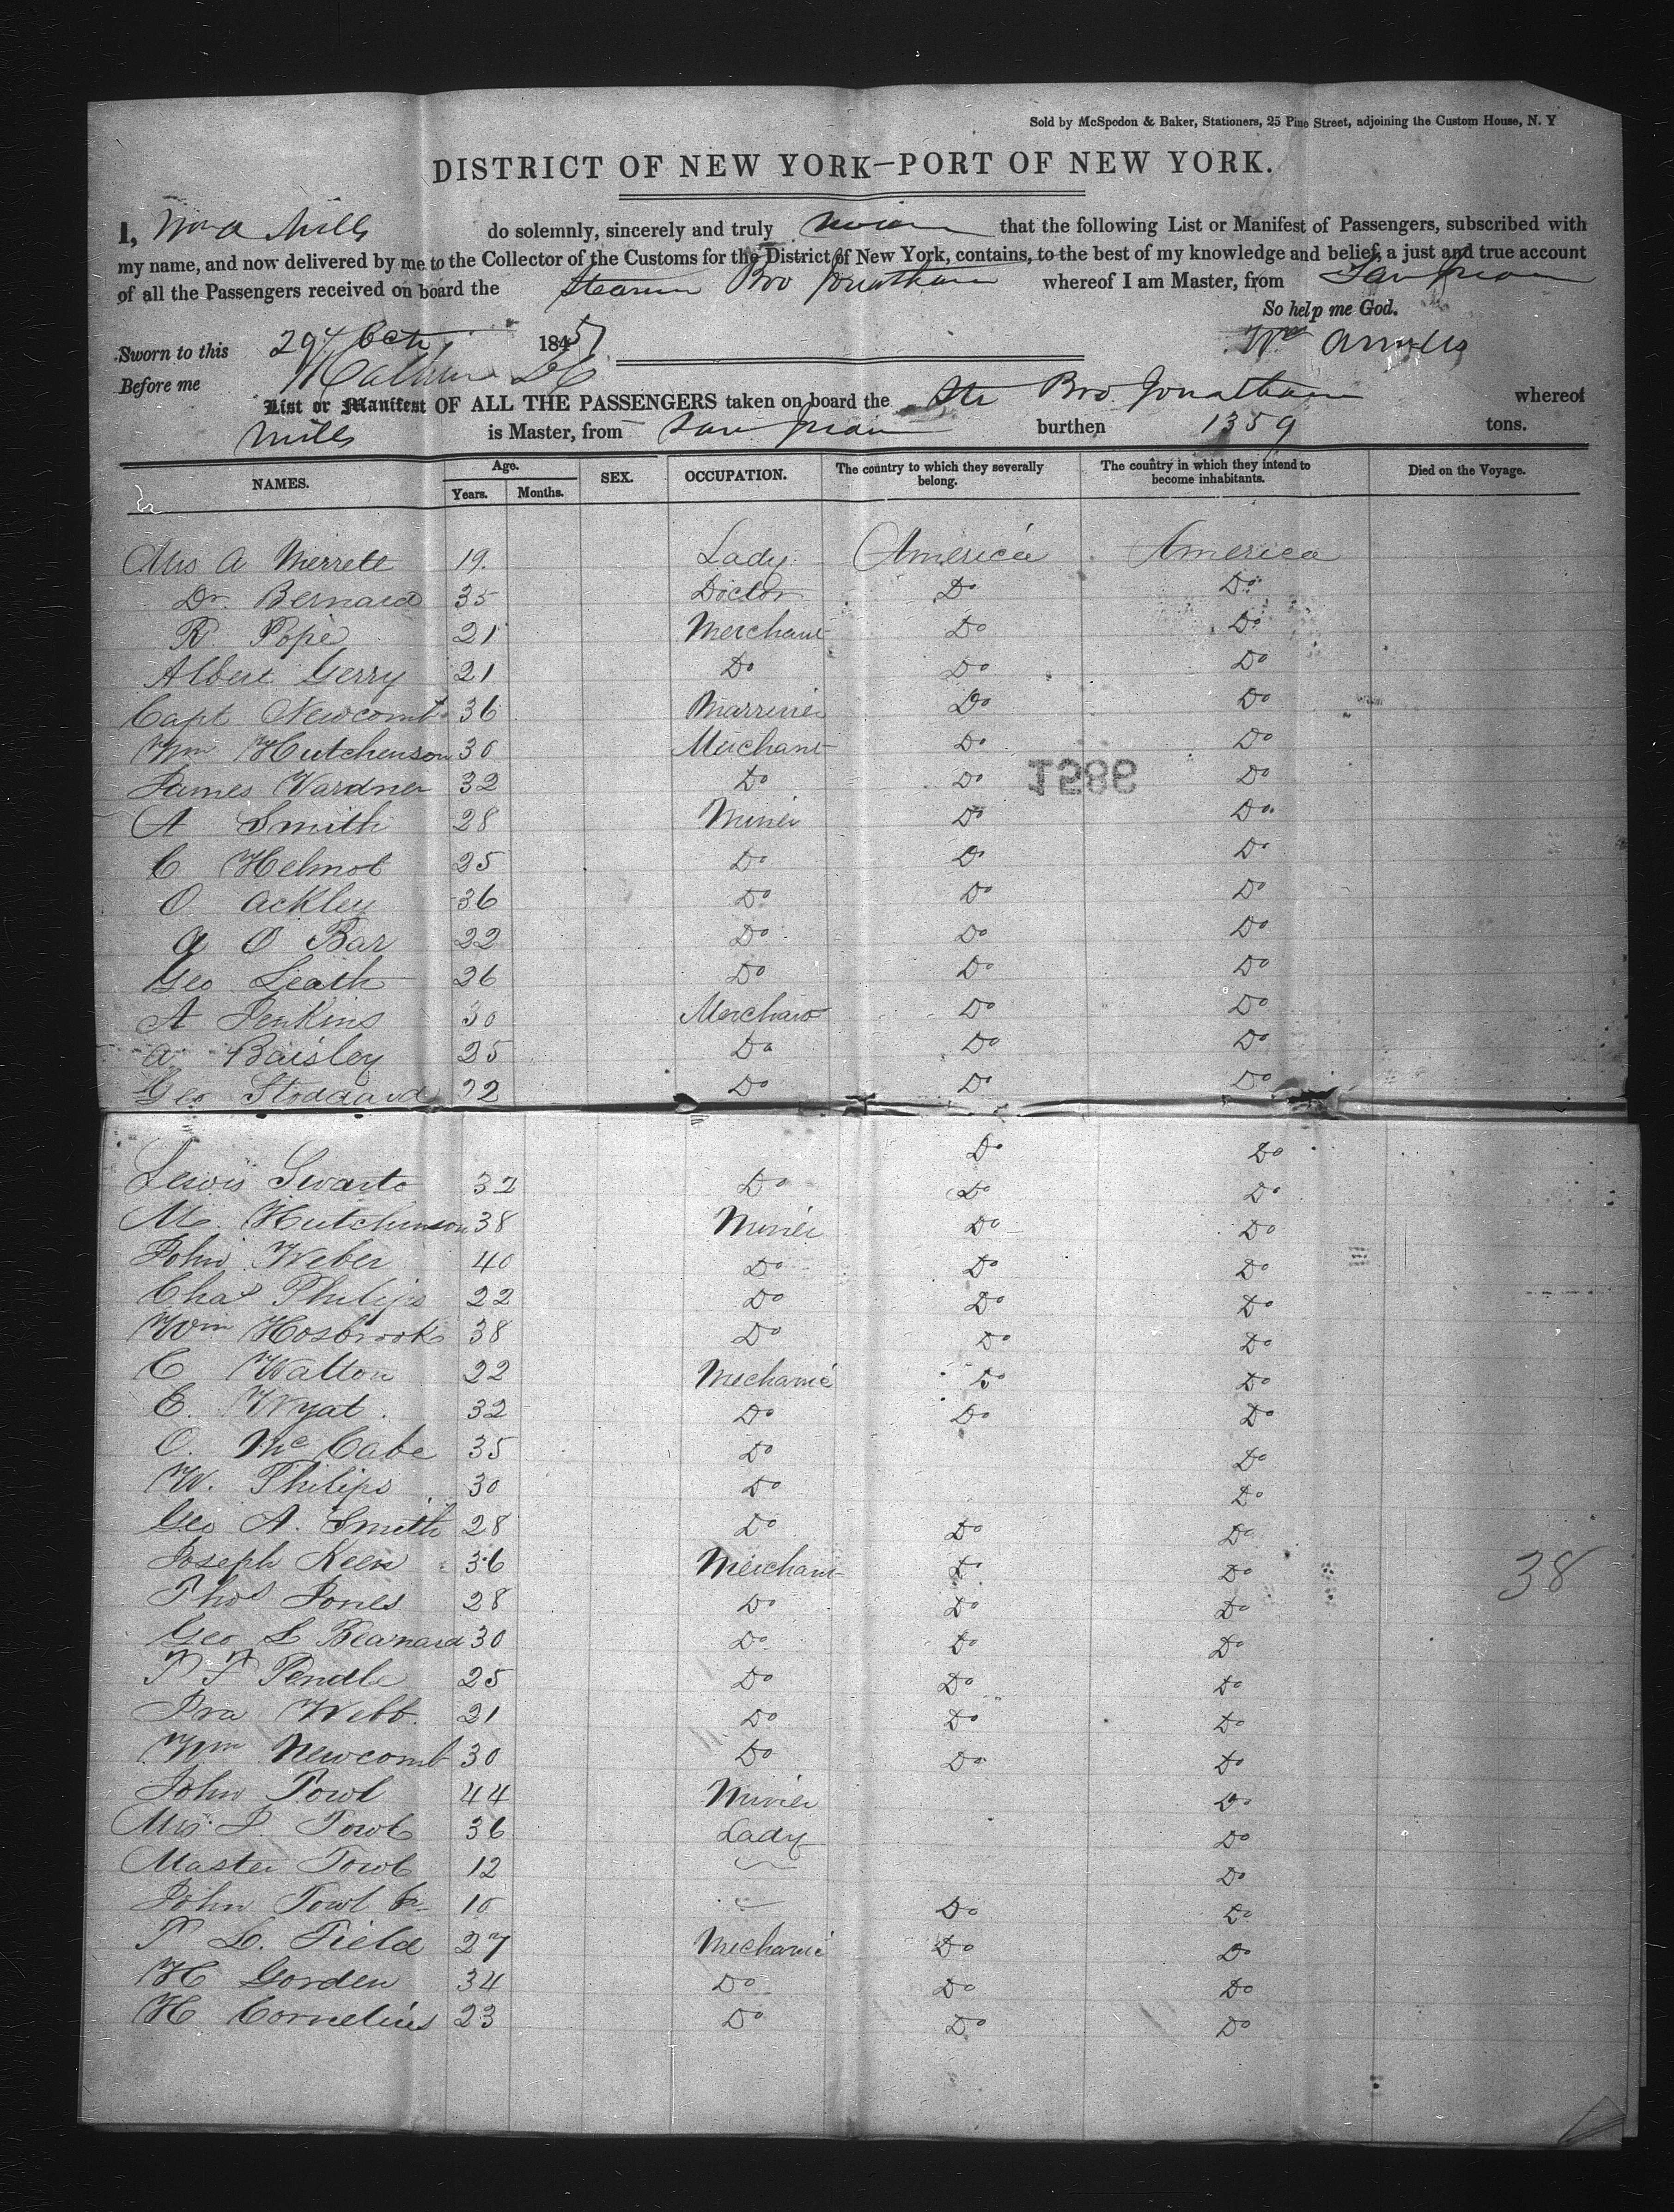 Sold by McSpedon & Baker, Stationers, 25 Pine Street, adjoining the Custom House, N. Y
DISTRICT OF NEW YORK—PORT OF NEW YORK.
I, Wm A Mills do solemnly, sincerely and truly that the following List or Manifest of Passengers, subscribed with
my name, and now delivered by me to the Collector of the Customs for the District of New York, contains, to the best of my knowledge and belief, a just and true account
of all the Passengers received on board the Steamer Bro Jonathan whereof I am Master, from San Juan
So help me God.
Sworn to this 29th Oct 1851 Wm A Mills
Before me
List or Manifest OF ALL THE PASSENGERS taken on board the Str Bro. Jonathan whereof
Mills is Master, from San Juan burthen 1359 tons.
NAMES. Age. Years. Months. SEX. OCCUPATION. The country to which they severally belong. The country in which they intend to become inhabitants. Died on the Voyage.
Mrs A Merrett 19. Lady America America
Dr. Bernard 35 Doctor Do Do
R. Pope 21 Merchant Do Do
Albert Gerry 21 Do Do Do
Capt Newcomb 36 Marriner Do Do
Wm Hutchenson 30 Merchant Do Do
James Vardner 32 Do Do Do
1586
A Smith 28 Miner Do Do
C Helmot 25 Do Do Do
O Ackley 36 Do Do Do
A O Bar 22 Do Do Do
Geo Leath 26 Do Do Do
A Jenkins 30 Merchant Do Do
A Baisley 25 Do Do Do
Geo Stoddard 22 Do Do Do
Do Do
Lewis Swarts 32 Do Do Do
M. Hutchinson 38 Miner Do Do
John Weber 40 Do Do Do
Chas Philips 22 Do Do Do
Wm Hosbrook 38 Do Do Do
C Walton 22 Mechanic Do Do
E. Wyat. 32 Do Do Do
O. McCabe 35 Do Do
W. Philips 30 Do Do
Geo A. Smith 28 Do Do Do
Joseph Keen 36 Merchant Do Do 38
Thos Jones 28 Do Do Do
Geo L Bearnard 30 Do Do Do
T F Pendle 25 Do Do Do
Ira Webb 21 Do Do Do
Wm Newcomb 30 Do Do Do
John Towl 44 Miner Do
Mrs J. Towl 36 Lady Do
Master Towl 12 Do
John Towl Jr 10 Do Do
T L. Field 27 Mechanic Do Do
H Gorden 34 Do Do Do
H Cornelius 23 Do Do Do